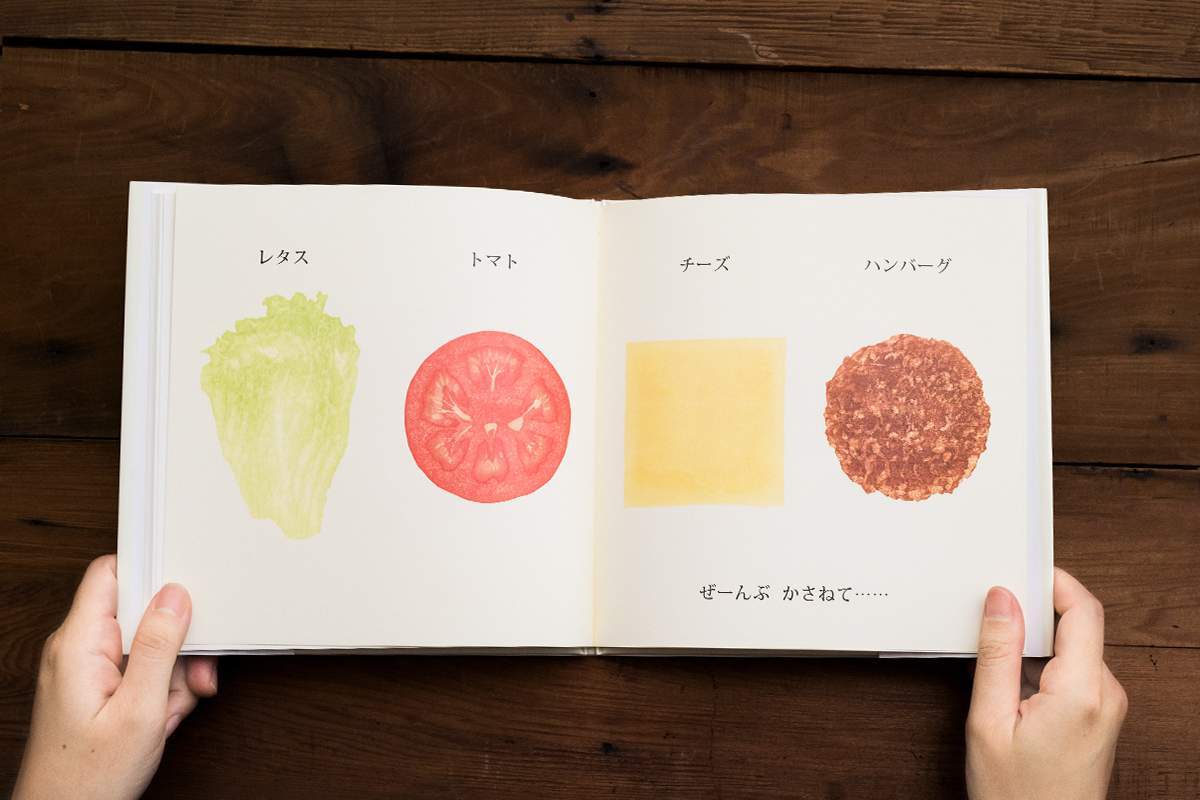 レタス
トマト
チーズ
ハンバーグ
ぜーんぶ かさねて……